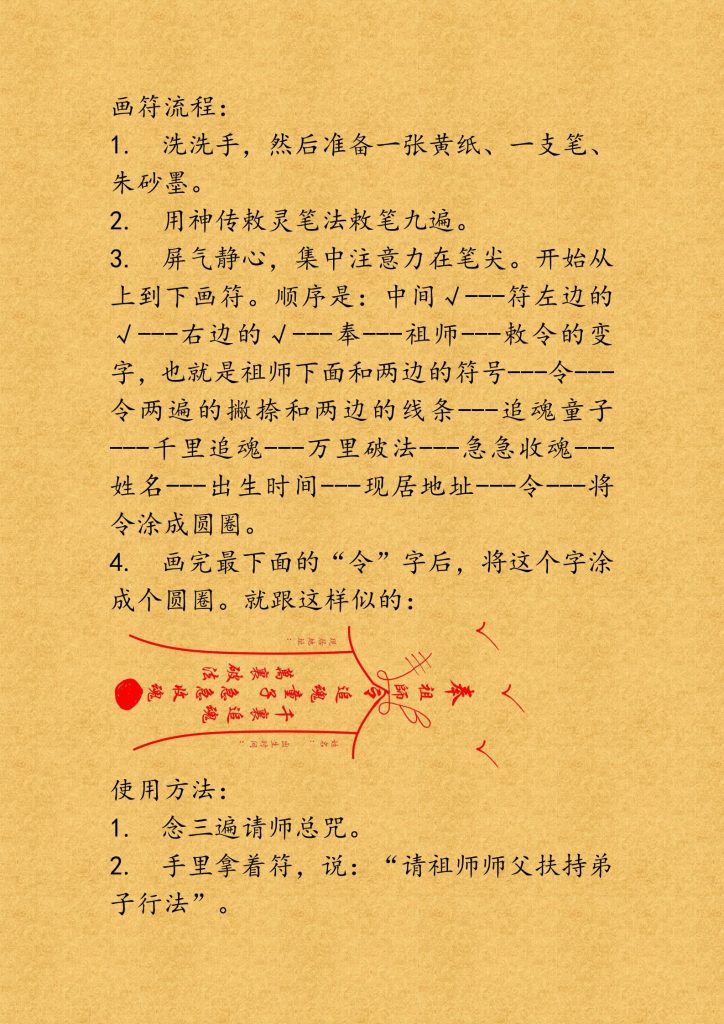 画符流程：
1. 洗洗手，然后准备一张黄纸、一支笔、
朱砂墨。
2. 用神传敕灵笔法敕笔九遍。
3. 屏气静心，集中注意力在笔尖。开始从
上到下画符。顺序是：中间√---符左边的
√---右边的√---奉---祖师---敕令的变
字，也就是祖师下面和两边的符号---令---
令两遍的撇捺和两边的线条---追魂童子
---千里追魂---万里破法---急急收魂---
姓名---出生时间---现居地址---令---将
令涂成圆圈。
4. 画完最下面的“令”字后，将这个字涂
成个圆圈。就跟这样似的：
奉
祖師
令
追魂童子急急收魂
千裏追魂
萬裏破法
姓名：
出生时间：
现居地址：
使用方法：
1. 念三遍请师总咒。
2. 手里拿着符，说：“请祖师师父扶持弟
子行法”。